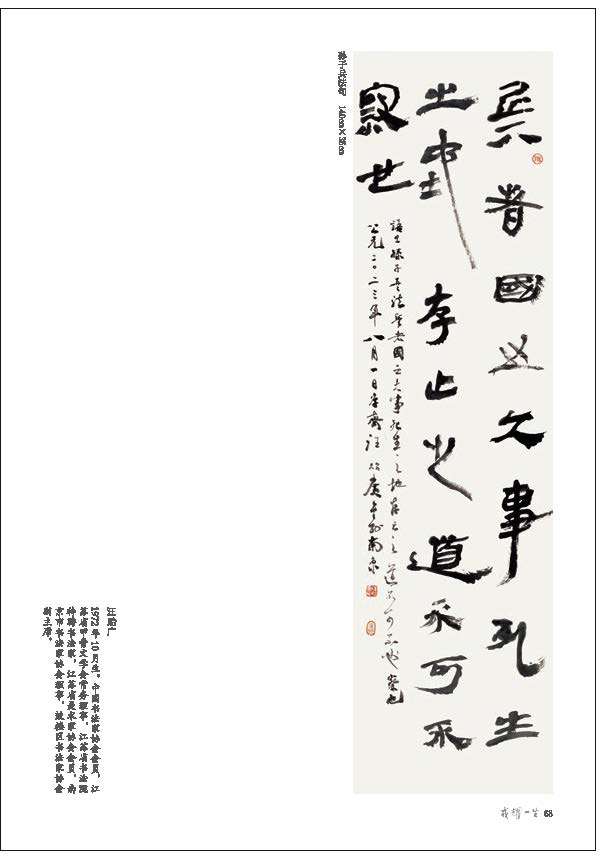 兵者國之大事死生
之地存亡之道不可不
察也
語出孫子兵法兵者國之大事死生之地存亡之道不可不察也
公元二〇二三年八月一日
孙子·兵法句 140cm×35cm
汪贻广
1972年10月生。中国书法家协会会员，江
苏省甲骨文学会常务理事，江苏省书法院
特聘书法家，江苏省美术家协会会员，南
京市书法家协会理事，鼓楼区书法家协会
副主席。
68